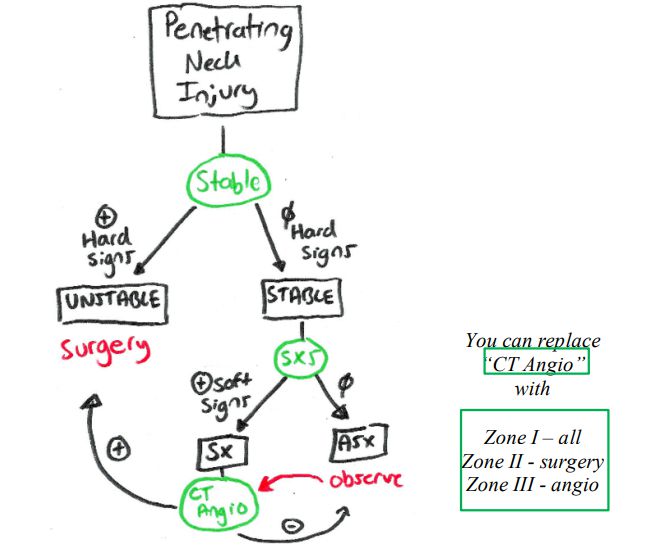 Penetrating
Neck
Injury
Stable
+
Hard
signs
∅ Hard
signs
UNSTABLE
STABLE
surgery
SXS
+ soft
signs
∅
SX
ASX
observe
+
CT
Angio
-
You can replace
“CT Angio”
with
Zone I – all
Zone II - surgery
Zone III - angio